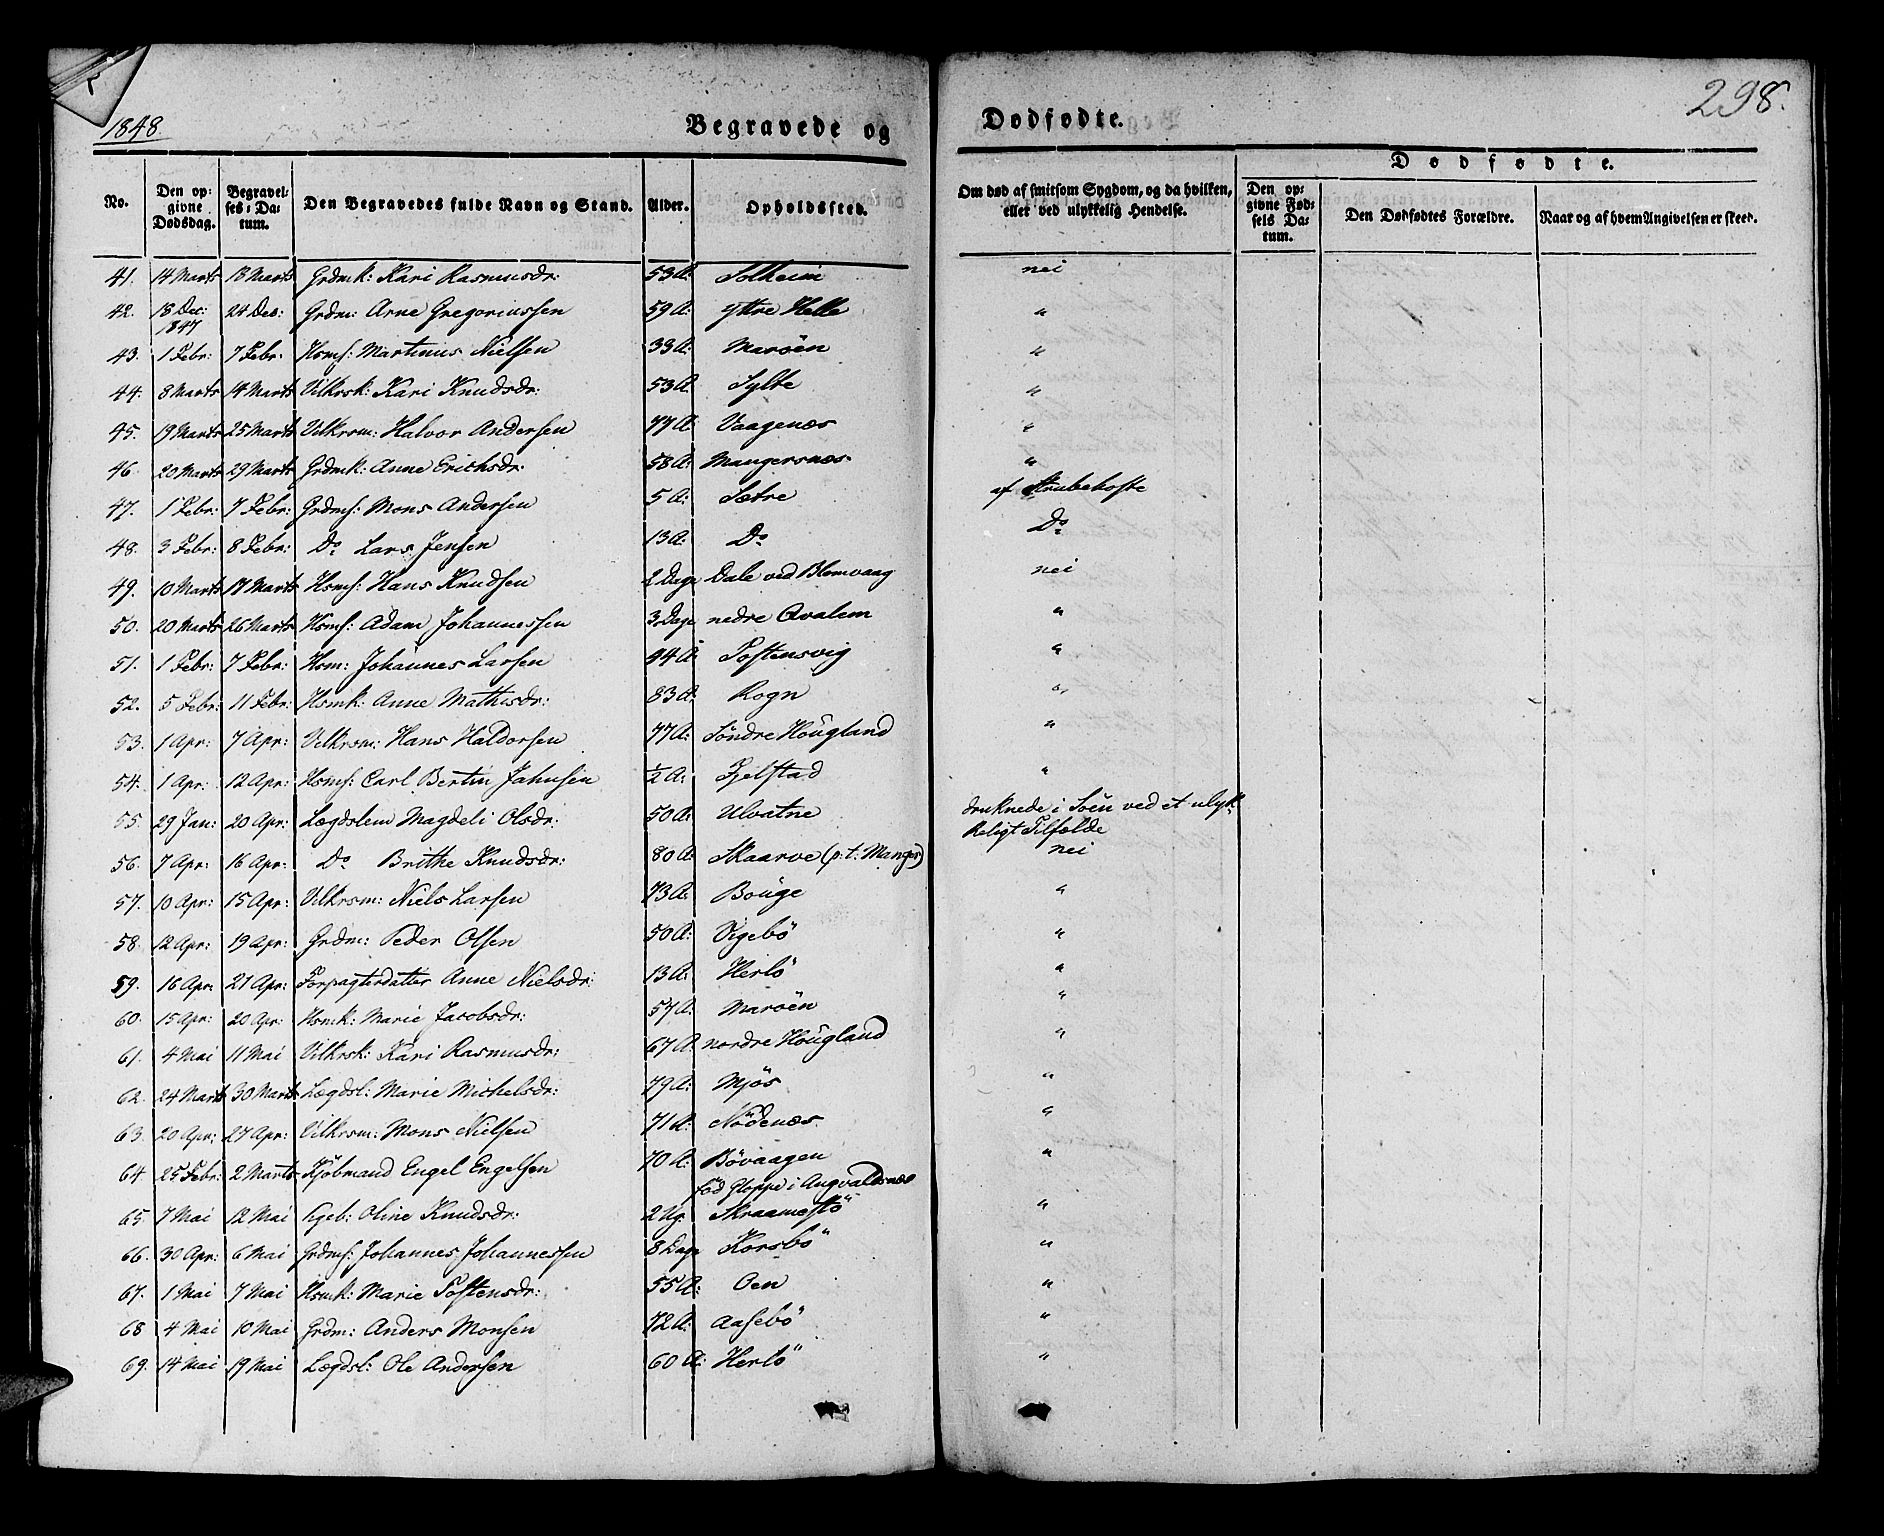 298.
1848. Begravede og Dødfødte.
Dødfødte.
No. Den opgivne Dødsdag. Begravelses-Datum. Den Begravedes fulde Navn og Stand. Alder. Opholdssted. Om død af smitsom Sygdom, og da hvilken, eller ved ulykkelig Hendelse. Den opgivne Fødsels Datum. Den Dødfødtes Forældre. Naar og af hvem Angivelsen er skeed.
41. 14 Marts 18 Marts Grdmk: Kari Rasmusdr: 53 A: Solheim nei
42. 18 Dec: 1847 24 Dec: Grdm: Arne Gregoriussen 59 A: yttre Helle "
43. 1 Febr: 7 Febr: Hsms: Martinus Nielsen 33 A: Marøen "
44. 8 Marts 14 Marts Vilkrsk: Kari Knudsdr: 53 A: Sylte "
45. 19 Marts 25 Marts Vilkrsm: Halvor Andersen 77 A: Vaagenæs "
46. 20 Marts 29 Marts Grdmk: Anne Erichsdr: 58 A: Mangersnæs "
47. 1 Febr: 7 Febr: Grdms: Mons Andersen 5 A: Sætre af Strubehoste
48. 3 Febr: 8 Febr: Do Lars Jensen 13 A: Do Do
49. 10 Marts 17 Marts Hsms: Hans Knudsen 2 Dage Dale ved Blomvaag nei
50. 20 Marts 26 Marts Hsms: Adam Johannessen 3 Dage nedre Qvalem "
51. 1 Febr: 7 Febr: Hsm: Johannes Larsen 44 A: Tostensvig "
52. 5 Febr: 11 Febr: Hsmk: Anne Mathisdr: 83 A: Rogn "
53. 1 Apr: 7 Apr: Vilkrsm: Hans Haldorsen 77 A: Søndre Hougland "
54. 1 Apr: 12 Apr: Hsms: Carl Bertin Jahnsen 1/2 A: Fjelstad "
55. 29 Jan: 20 Apr: Lægdslem Magdeli Olsdr: 50 A: Ulvatne druknede i Søen ved et ulyk-
keligt Tilfælde
56. 7 Apr: 16 Apr: Do Brithe Knudsdr: 80 A: Skaarve (p: t: Manger) nei
57. 10 Apr: 15 Apr: Vilkrsm: Niels Larsen 73 A: Bouge "
58. 12 Apr: 19 Apr: Grdm: Peder Olsen 50 A: Vigebö "
59. 16 Apr: 21 Apr: Forpagterdatter Anne Nielsdr: 13 A: Herlö "
60. 15 Apr: 20 Apr: Hsmk: Marie Jacobsdr: 57 A: Marøen "
61. 4 Mai 11 Mai Vilkrsk: Kari Rasmusdr: 67 A: nordre Hougland "
62. 24 Marts 30 Marts Lægdsl: Marie Michelsdr: 79 A: Mjøs "
63. 20 Apr: 27 Apr: Vilkrsm: Mons Nielsen 71 A: Nödenæs "
64. 25 Febr: 2 Marts Kjöbmand Engel Engelsen 70 A: Bövaagen "
fød Gloppe i Augvaldsnæs
65. 7 Mai 12 Mai Ugeb: Oline Knudsdr: 2 Ug: Skraamestö "
66. 30 Apr: 6 Mai Grdms: Johannes Johannessen 8 Dage Korsbö "
67. 1 Mai 7 Mai Hsmk: Marie Tostensdr: 55 A: Oen "
68 4 Mai 10 Mai Grdm: Anders Monsen 72 A: Aasebö "
69. 14 Mai 19 Mai Lægdsl: Ole Andersen 60 A: Herlö "